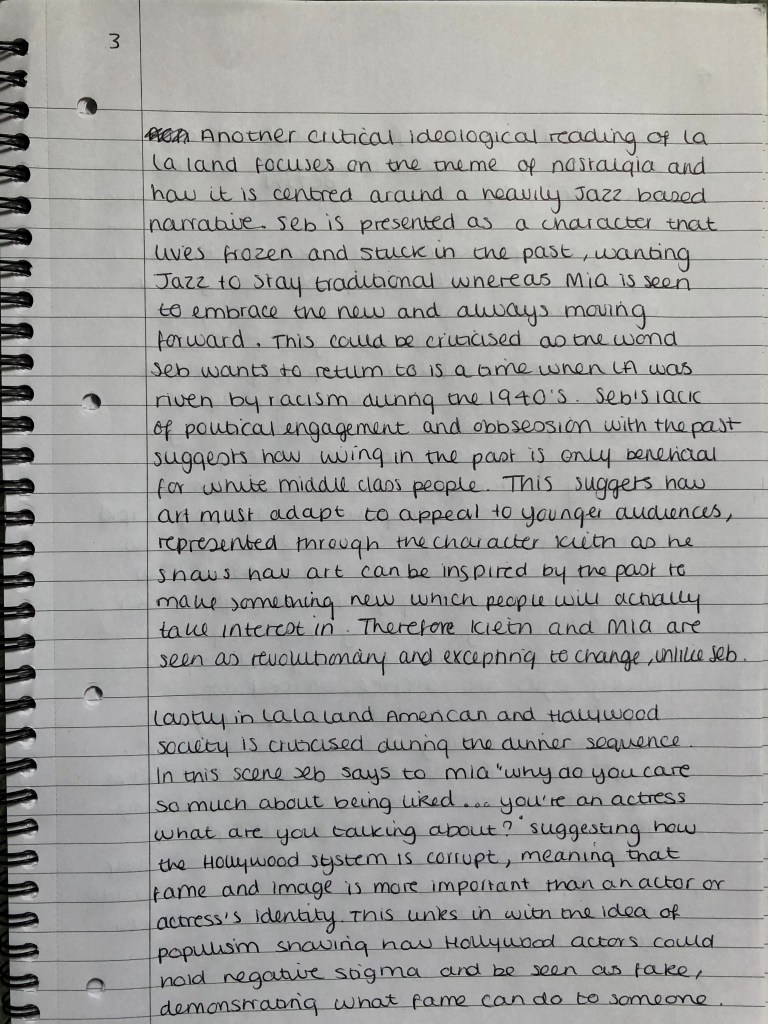 3
Another critical ideological reading of la
la land focuses on the theme of nostalgia and
how it is centred around a heavily Jazz based
narrative. Seb is presented as a character that
lives frozen and stuck in the past, wanting
Jazz to stay traditional whereas Mia is seen
to embrace the new and always moving
forward. This could be criticised as the world
Seb wants to return to is a time when LA was
riven by racism during the 1940's. Seb's lack
of political engagement and obbsession with the past
suggests how living in the past is only beneficial
for white middle class people. This suggets how
art must adapt to appeal to younger audiences,
represented through the character Kieth as he
shows how art can be inspired by the past to
make something new which people will actually
take interest in. Therefore Kieth and Mia are
seen as revolutionary and excepting to change, unlike Seb.
Lastly in La la land American and Hollywood
society is criticised during the dinner sequence.
In this scene Seb says to mia "why do you care
so much about being liked... you're an actress
what are you talking about?" suggesting how
the Hollywood system is corrupt, meaning that
fame and image is more important than an actor or
actress's identity. This links in with the idea of
populism showing how Hollywood actors could
hold negative stigma and be seen as fake,
demonstrating what fame can do to someone.